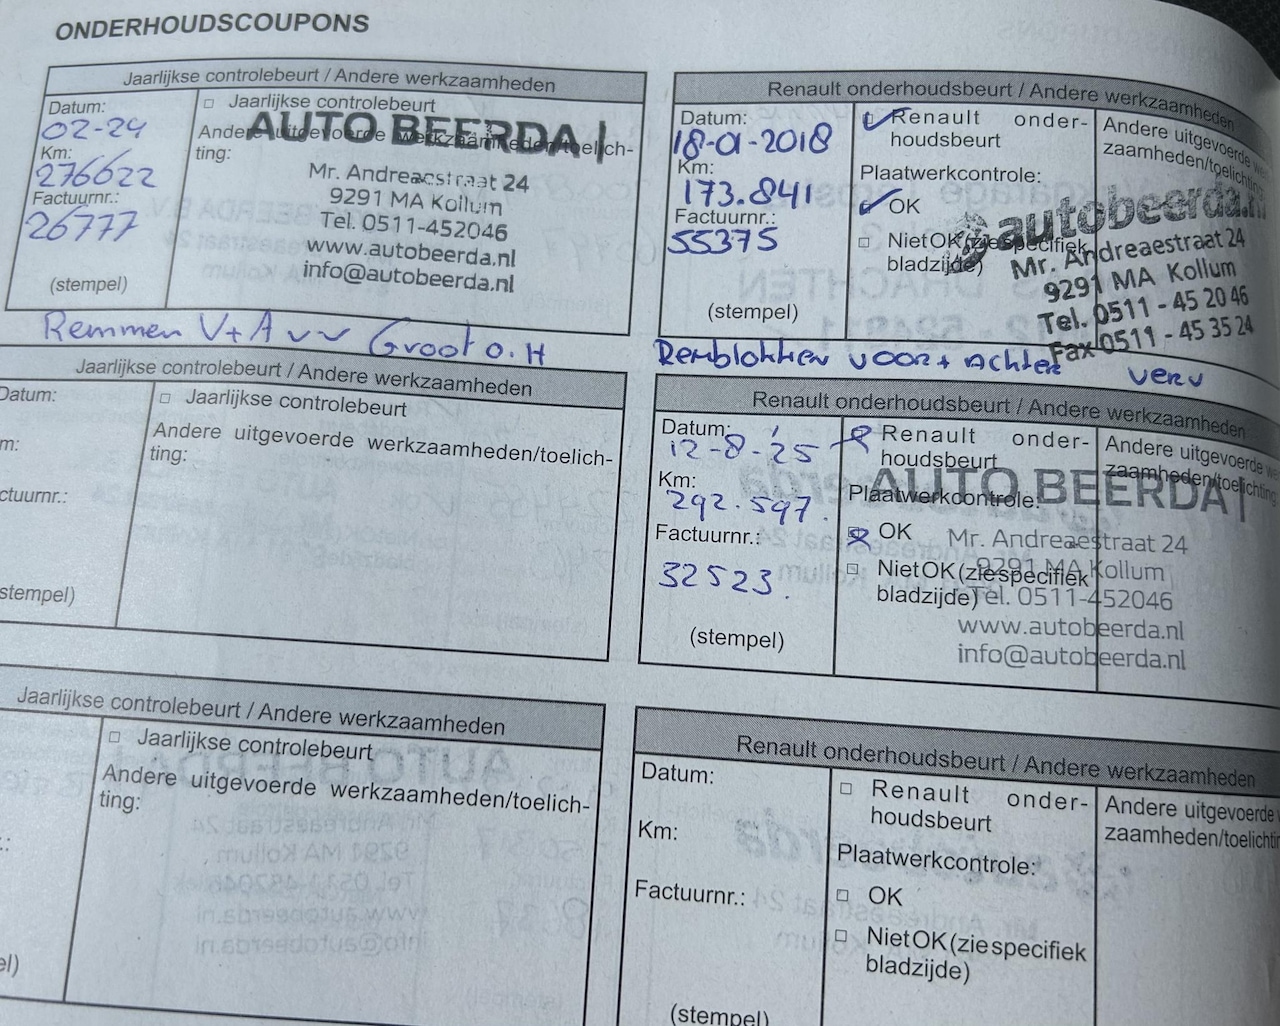 ONDERHOUDSCOUPONS
Jaarlijkse controlebeurt / Andere werkzaamheden
Datum:
02-24
Km:
276622
Factuurnr.:
26777
(stempel)
Jaarlijkse controlebeurt
Andere uitgevoerde werkzaamheden/toelich-
ting:
AUTO BEERDA |
Mr. Andreaestraat 24
9291 MA Kollum
Tel. 0511-452046
www.autobeerda.nl
info@autobeerda.nl
Remmen V+A vv Groot O.H
Renault onderhoudsbeurt / Andere werkzaamheden
Datum:
18-01-2018
Km:
173.841
Factuurnr.:
55375
(stempel)
Renault onder-
houdsbeurt
Plaatwerkcontrole:
OK
Niet OK (zie specifiek
bladzijde)
Andere uitgevoerde
zaamheden/toelichting
autobeerda.nl
Mr. Andreaestraat 24
9291 MA Kollum
Tel. 0511 - 45 20 46
Fax 0511 - 45 35 24
Remblokken voor + Achter verv
Jaarlijkse controlebeurt / Andere werkzaamheden
Datum:
m:
ctuurnr.:
stempel)
Jaarlijkse controlebeurt
Andere uitgevoerde werkzaamheden/toelich-
ting:
Renault onderhoudsbeurt / Andere werkzaamheden
Datum:
12-8-'25
Km:
292.597.
Factuurnr.:
32523.
(stempel)
Renault onder-
houdsbeurt
Plaatwerkcontrole:
OK
Niet OK (zie specifiek
bladzijde)
Andere uitgevoerde
zaamheden/toelichting
AUTO BEERDA |
Mr. Andreaestraat 24
9291 MA Kollum
Tel. 0511-452046
www.autobeerda.nl
info@autobeerda.nl
Jaarlijkse controlebeurt / Andere werkzaamheden
Jaarlijkse controlebeurt
Andere uitgevoerde werkzaamheden/toelich-
ting:
Renault onderhoudsbeurt / Andere werkzaamheden
Datum:
Km:
Factuurnr.:
(stempel)
Renault onder-
houdsbeurt
Plaatwerkcontrole:
OK
Niet OK (zie specifiek
bladzijde)
Andere uitgevoerde
zaamheden/toelichtin